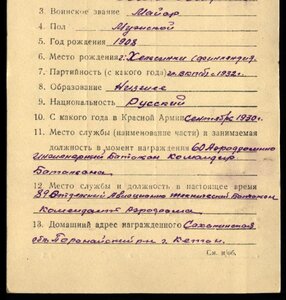 3 Воинское звание Майор
4 Пол Мужской
5 Год рождения 1908
6 Место рождения г. Хельсинки (Финляндия)
7 Партийность (с какого года) 1932 г.
8 Образование Низшее
9 Национальность Русский
10 С какого года в Красной Армии Сентябрь 1930 г.
11 Место службы (наименование части) и занимаемая
должность в момент награждения 60 Аэродромно
Инженерный Батальон Командир
Батальона
12 Место службы и должность в настоящее время
89 Отдельный Авиационно Технический Батальон
Комендант Аэродрома
13 Домашний адрес награжденного Сахалинская
обл.
См. н/об.